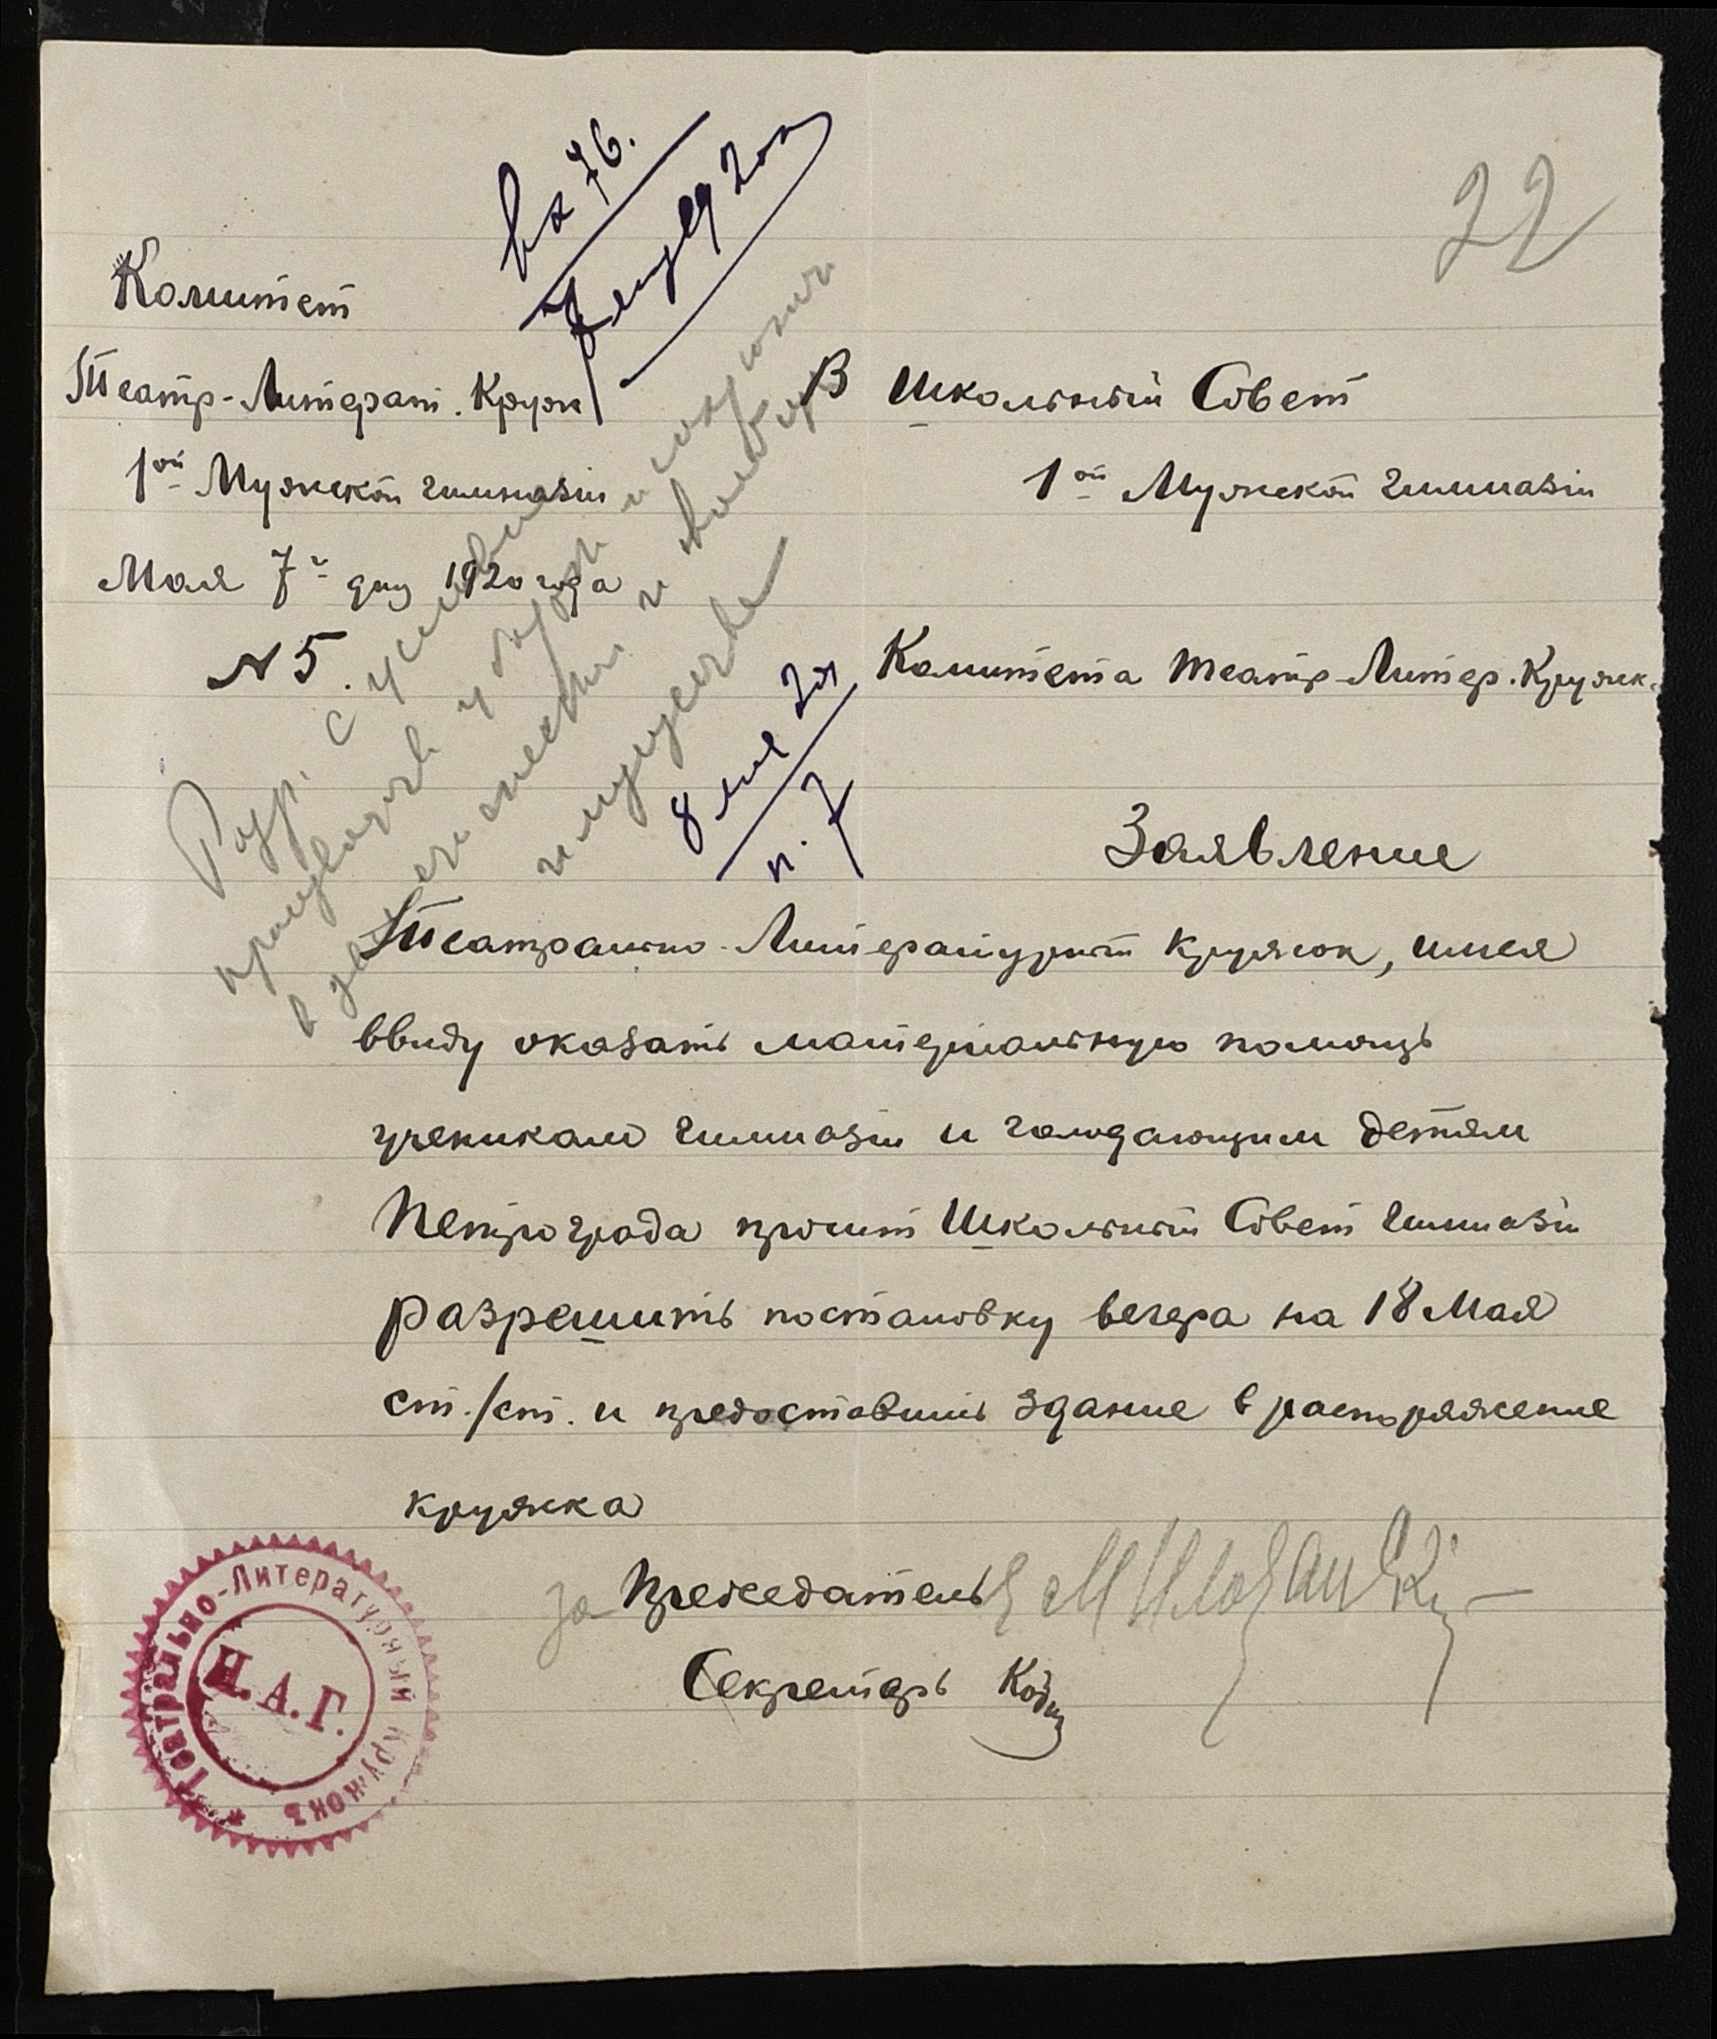 22
вх 76.
7 мая 20 г
Комитет
Театр-Литерат. Круж
1ой Мужской гимназiи
Мая 7го дня 1920 года
N 5.
В Школьный Совет
1ой Мужской гимназiи
Комитета Театр-Литер. Кружк.
Разр. с условием
произвести уборку
и
имущества
8 мая 20 г
п. 7
Заявление
Театрально-Литературный кружок, имея
ввиду оказать материальную помощь
ученикам гимназiи и голодающим детям
Петрограда просит Школьный Совет гимназiи
разрешить постановку вечера на 18 Мая
ст./ст. и предоставить здание в распоряжение
кружка
за Председателя
Секретарь
Театрально-Литературный Кружокъ
Н.А.Г.